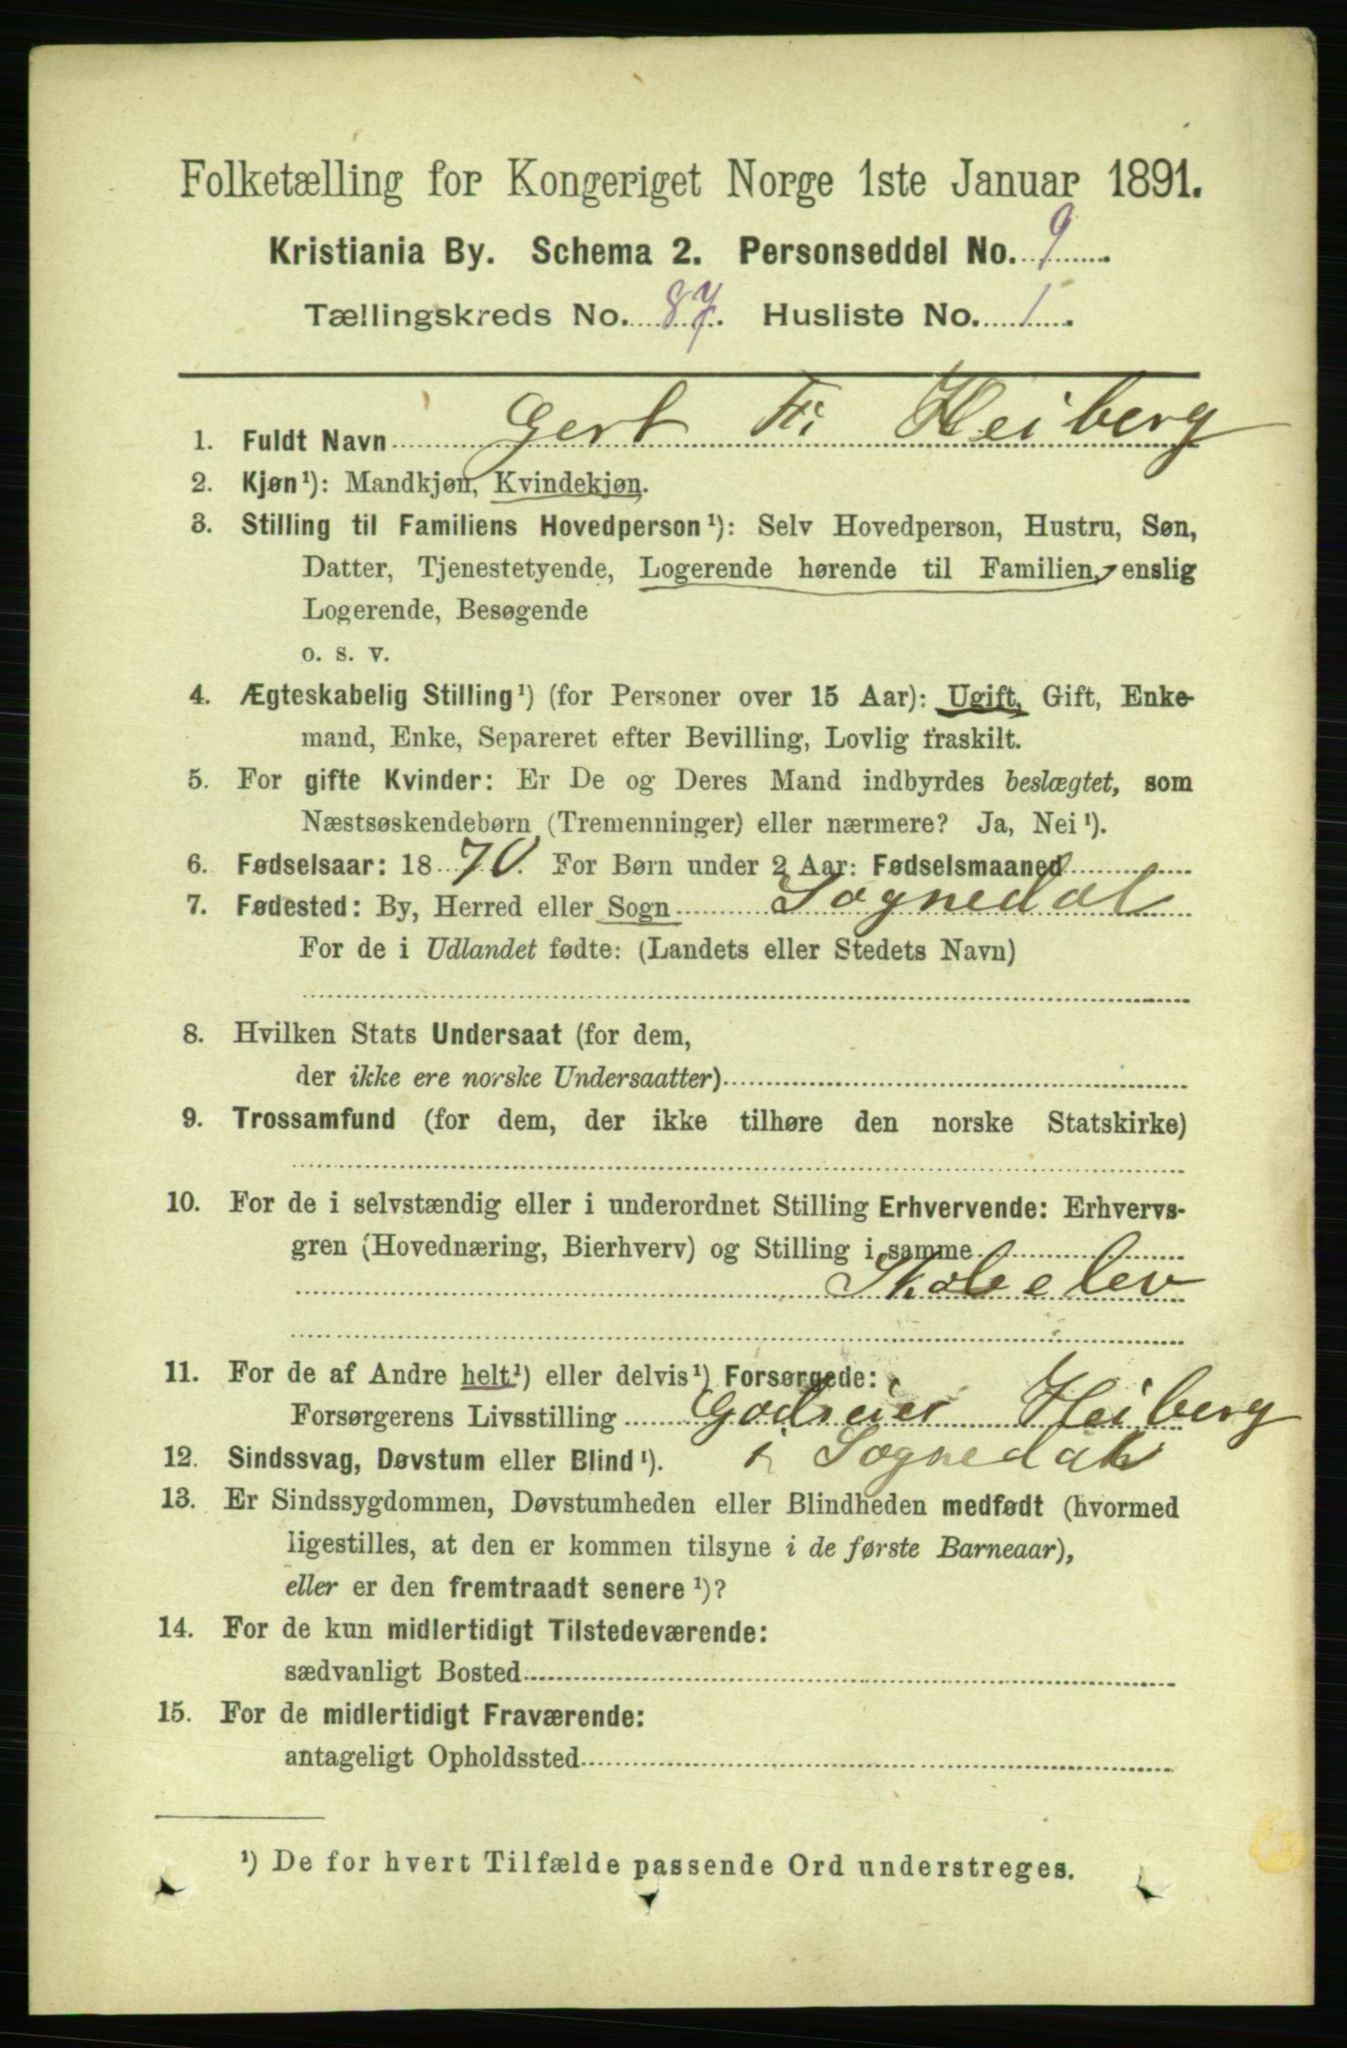 Folketælling for Kongeriget Norge 1ste Januar 1891.
Kristiania By. Schema 2. Personseddel No. 9
Tællingskreds No. 87. Husliste No. 1.
1. Fuldt Navn Gert Fr. Heiberg
2. Kjøn¹): Mandkjøn, Kvindekjøn.
3. Stilling til Familiens Hovedperson¹): Selv Hovedperson, Hustru, Søn,
Datter, Tjenestetyende, Logerende hørende til Familien, enslig
Logerende, Besøgende
o. s. v.
4. Ægteskabelig Stilling¹) (for Personer over 15 Aar): Ugift, Gift, Enke-
mand, Enke, Separeret efter Bevilling, Lovlig fraskilt.
5. For gifte Kvinder: Er De og Deres Mand indbyrdes beslægtet, som
Næstsøskendebørn (Tremenninger) eller nærmere? Ja, Nei¹).
6. Fødselsaar: 1870. For Børn under 2 Aar: Fødselsmaaned
7. Fødested: By, Herred eller Sogn Sognedal
For de i Udlandet fødte: (Landets eller Stedets Navn)
8. Hvilken Stats Undersaat (for dem,
der ikke ere norske Undersaatter)
9. Trossamfund (for dem, der ikke tilhøre den norske Statskirke)
10. For de i selvstændig eller i underordnet Stilling Erhvervende: Erhvervs-
gren (Hovednæring, Bierhverv) og Stilling i samme
Skoleelev
11. For de af Andre helt¹) eller delvis¹) Forsørgede:
Forsørgerens Livsstilling Godseier Heiberg
12. Sindssvag, Døvstum eller Blind¹). i Sognedal
13. Er Sindssygdommen, Døvstumheden eller Blindheden medfødt (hvormed
ligestilles, at den er kommen tilsyne i de første Barneaar),
eller er den fremtraadt senere¹)?
14. For de kun midlertidigt Tilstedeværende:
sædvanligt Bosted
15. For de midlertidigt Fraværende:
antageligt Opholdssted
¹) De for hvert Tilfælde passende Ord understreges.